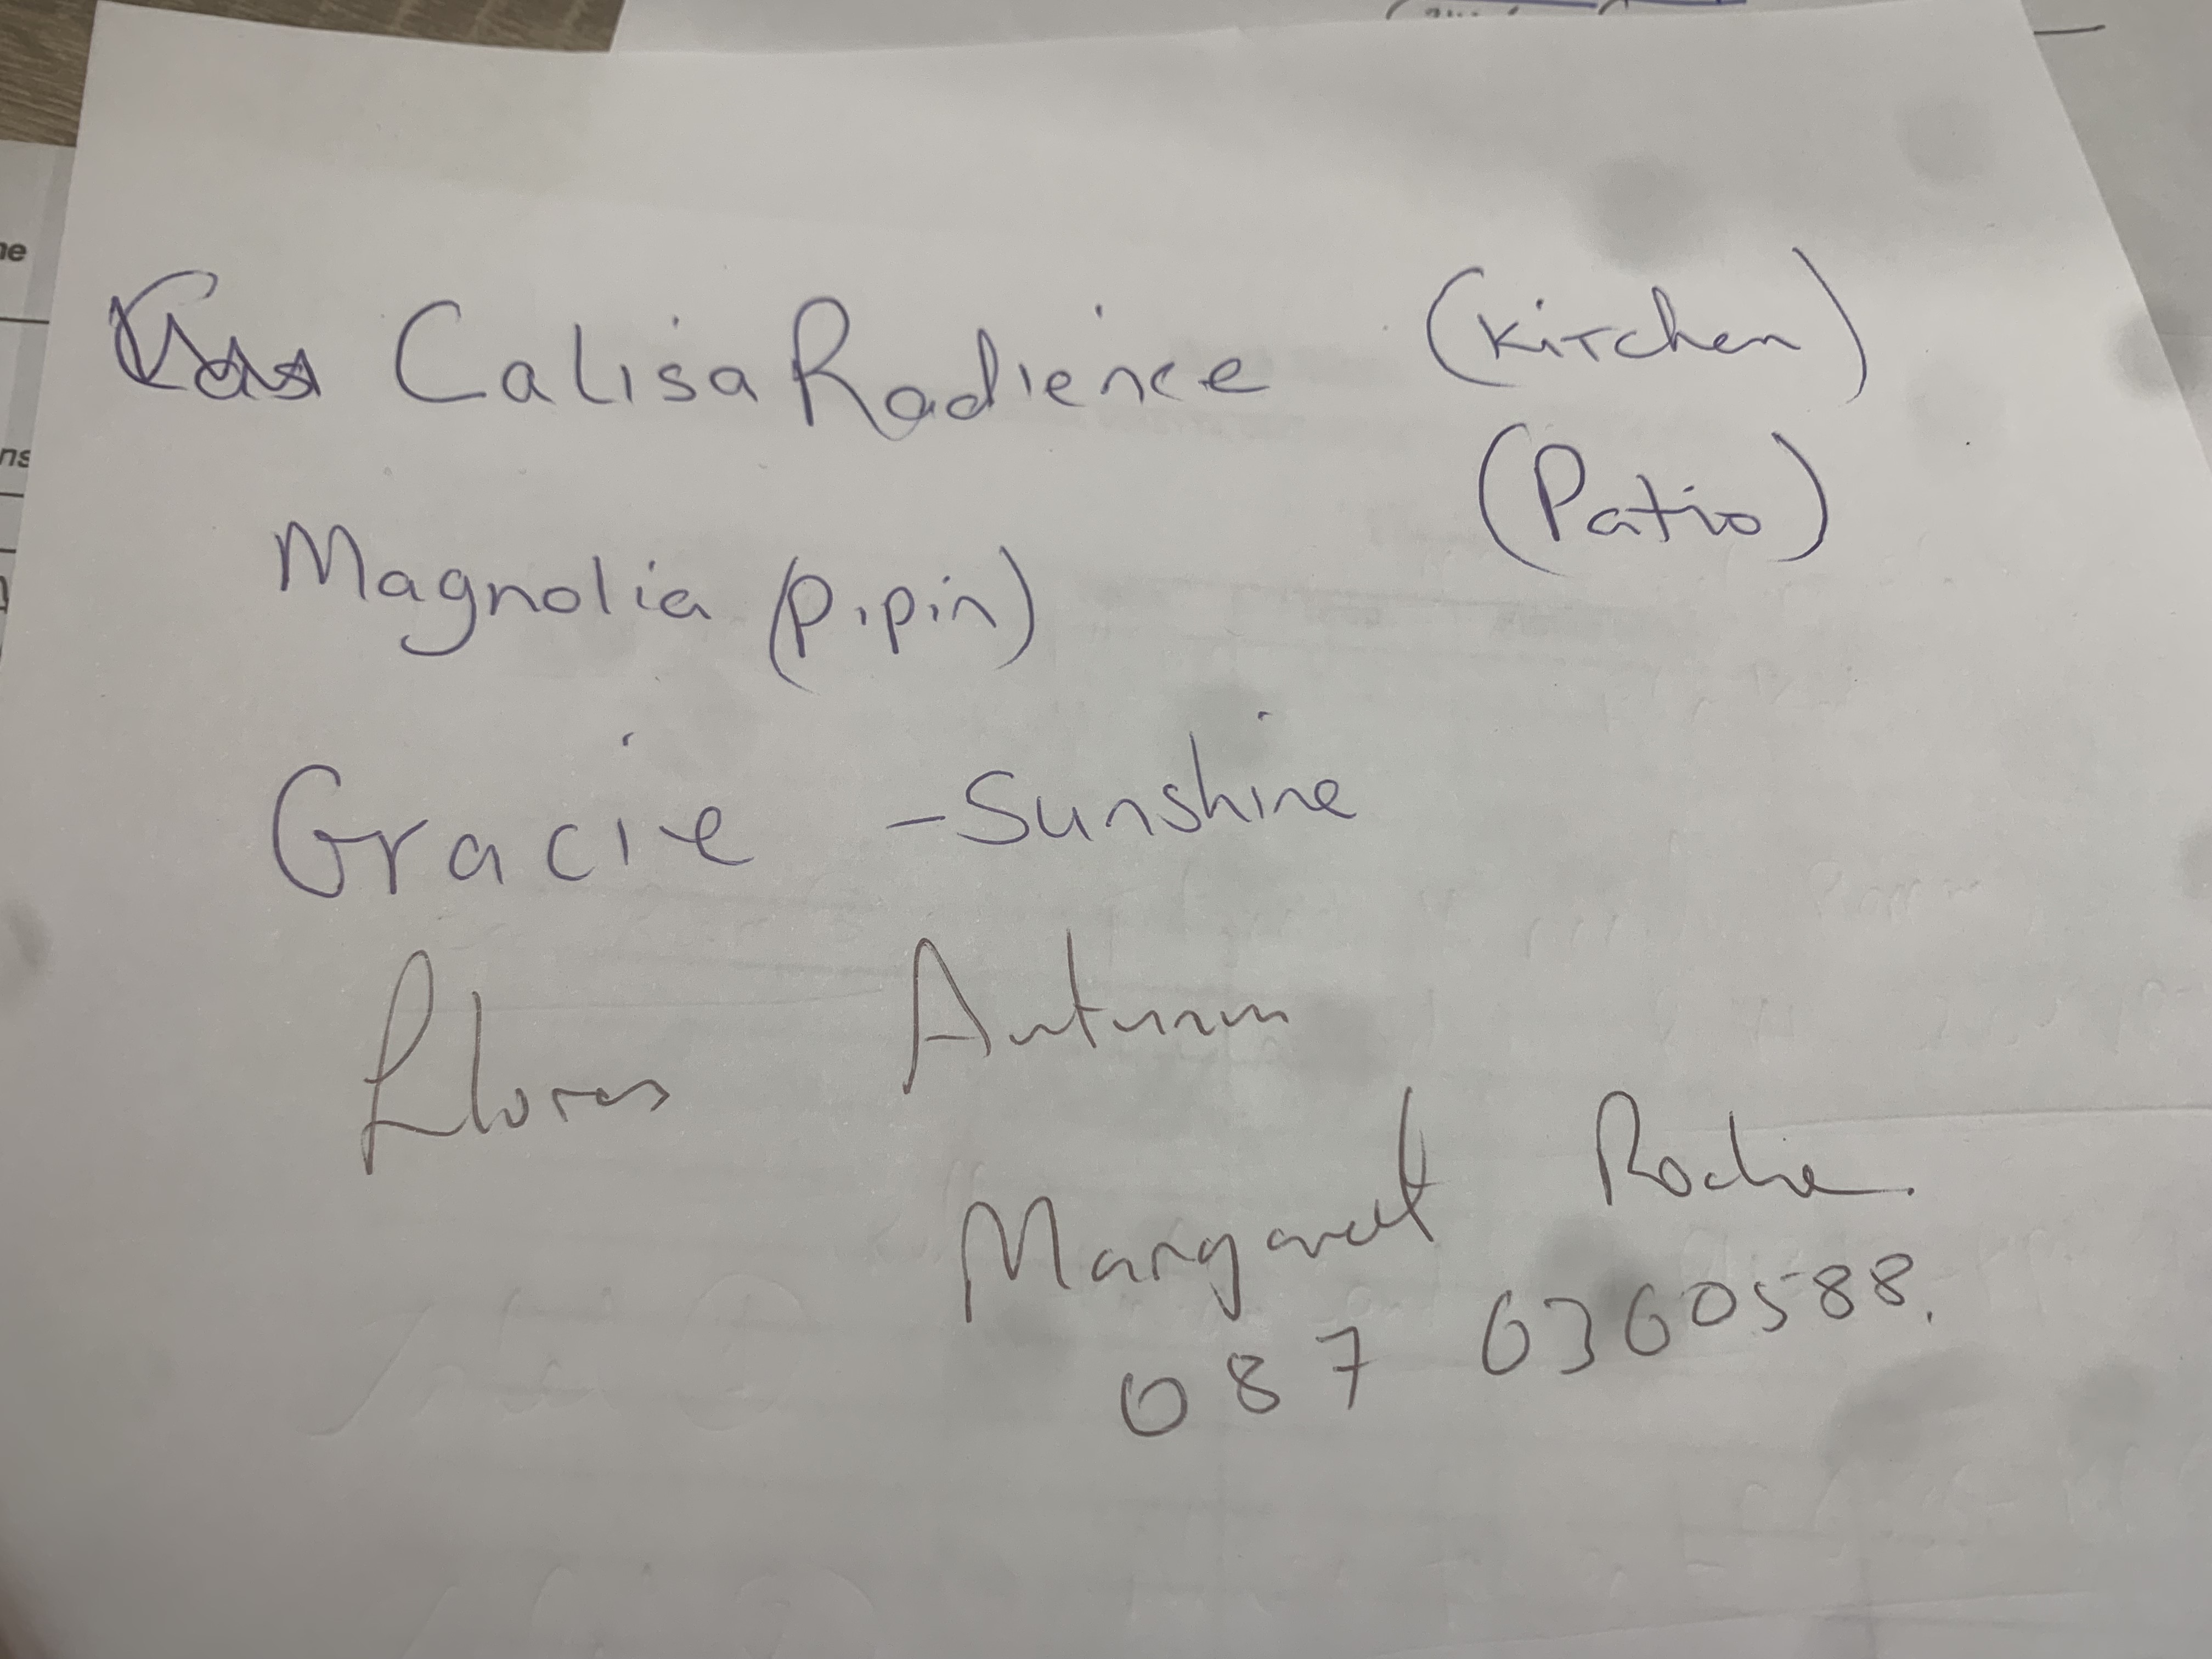 Calisa Radience (Kitchen)
(Patio)
Magnolia (Pipin)
Gracie - Sunshine
Flores Autumn
Margaret Roche.
087 6360588.
ne
ns